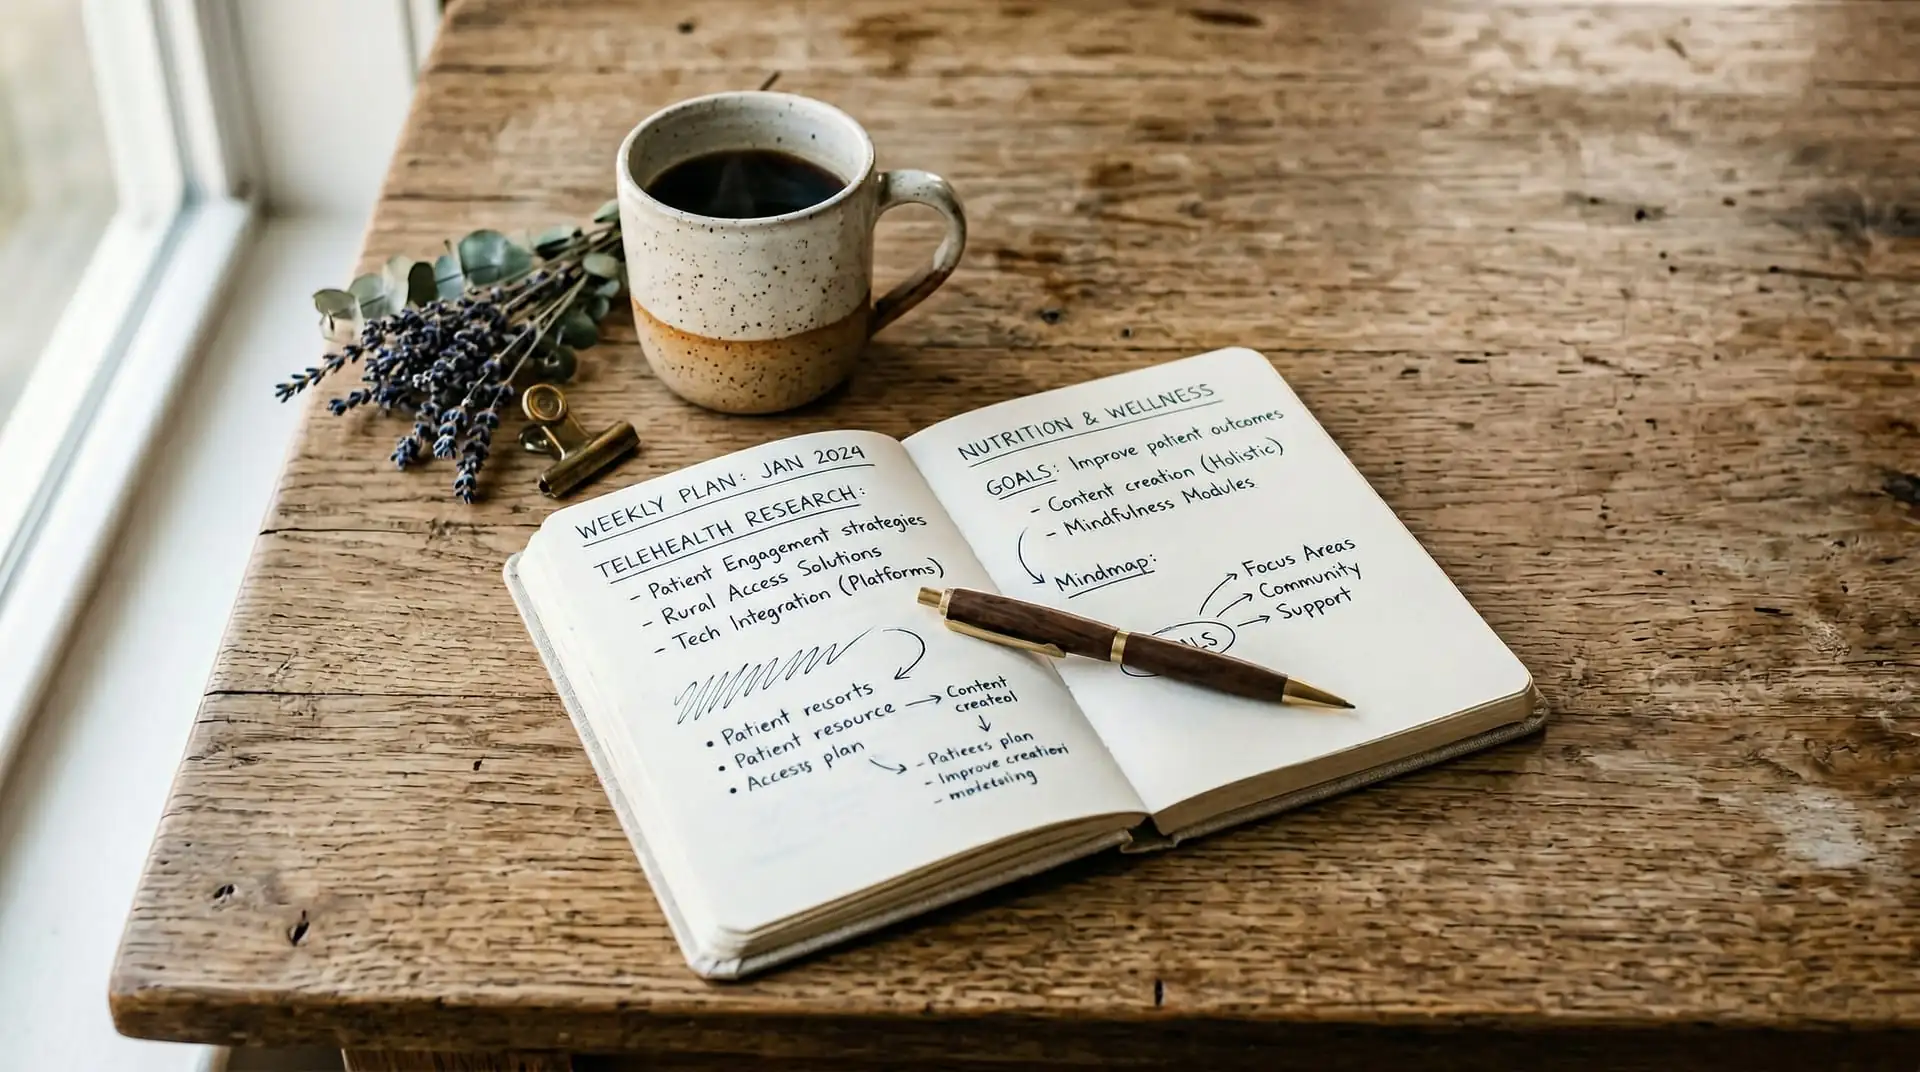 WEEKLY PLAN: JAN 2024
TELEHEALTH RESEARCH:
- Patient Engagement strategies
- Rural Access Solutions
- Tech Integration (Platforms)
• Patient resorts
• Patient resource → Content
createal
• Access plan
- Patieers plan
- Improve creation
NUTRITION & WELLNESS
GOALS: Improve patient outcomes
- Content creation (Holistic)
- Mindfulness Modules
Mindmap:
Focus Areas
Community
Support